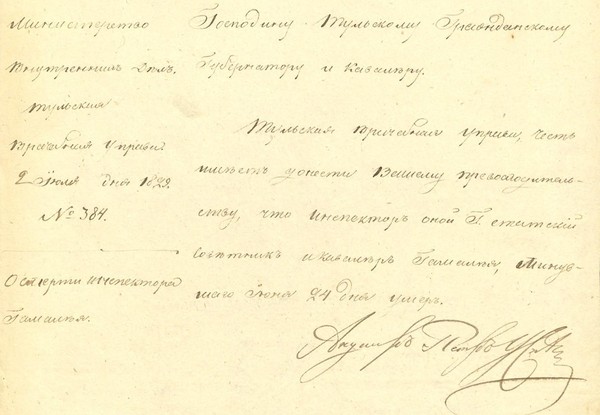 Министерство
Внутреннихъ Дѣлъ.
Тульская
Врачебная Управа
2 Іюля дня 1829.
№ 384.
О смерти инспектора
Гамалѣя.
Господину Тульскому Гражданскому
Губернатору и Кавалеру.
Тульская врачебная управа, честь
имѣетъ донести Вашему превосходитель-
ству, что инспекторъ оной Г. статскій
совѣтникъ и кавалеръ Гамалѣя, минув-
шаго Іюня 24 дня умеръ.
Акушеръ Петръ